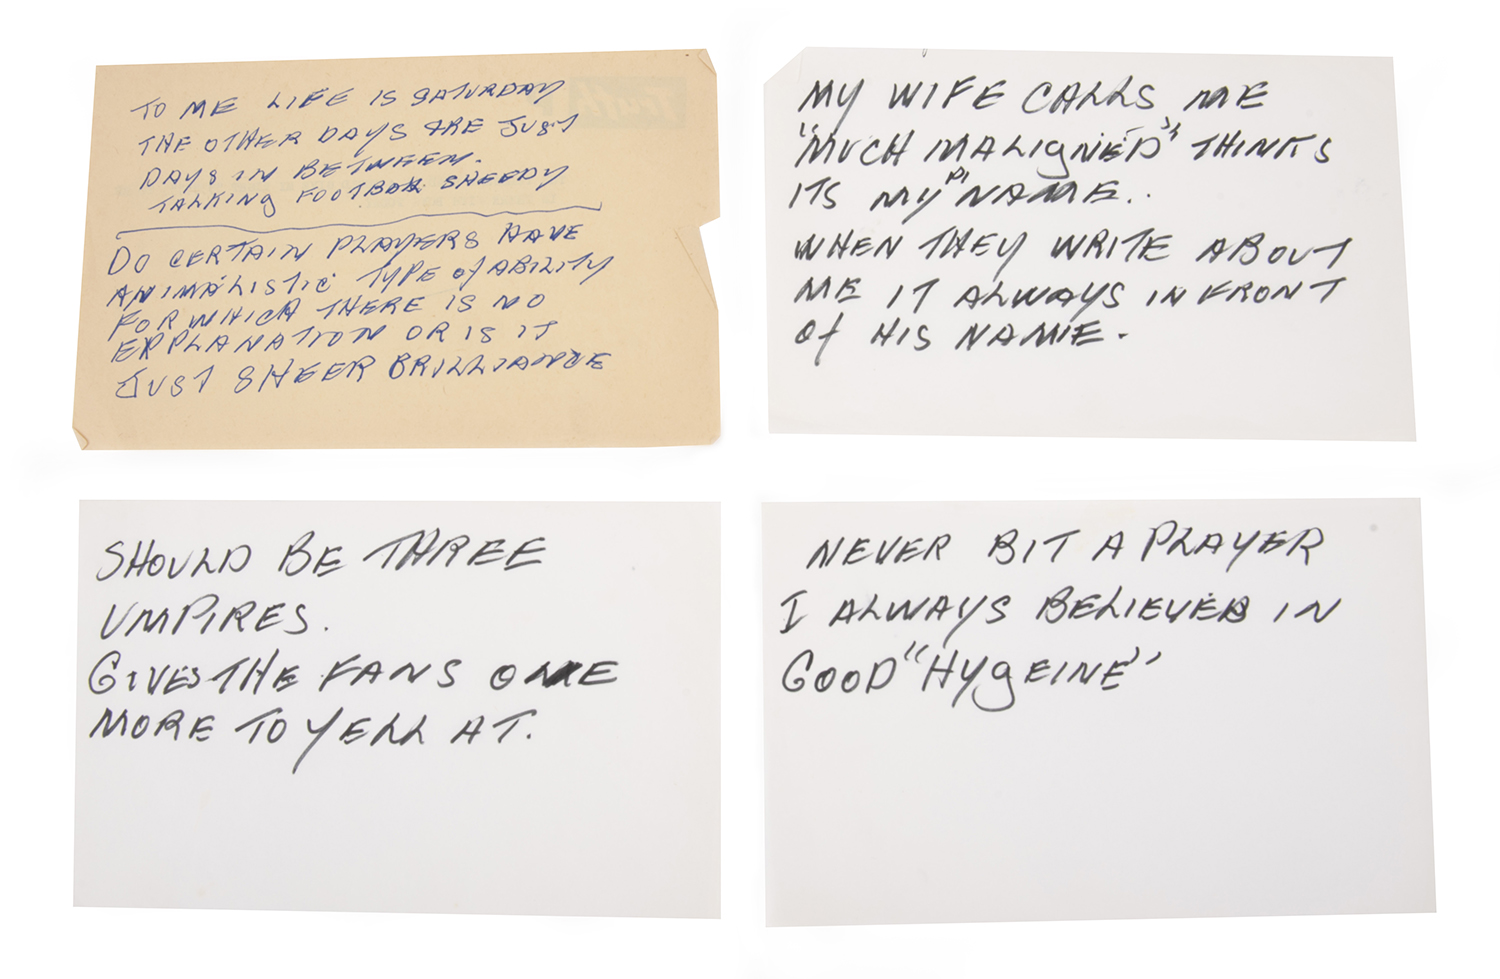 TO ME LIFE IS SATURDAY
THE OTHER DAYS ARE JUST
DAYS IN BETWEEN.
TALKING FOOTBALL SHEEDY
DO CERTAIN PLAYERS HAVE
ANIMALISTIC TYPE of ABILITY
FOR WHICH THERE IS NO
EXPLANATION OR IS IT
JUST SHEER BRILLIANCE
MY WIFE CALLS ME
"MUCH MALIGNED" THINKS
ITS MY NAME..
WHEN THEY WRITE ABOUT
ME IT ALWAYS IN FRONT
Of HIS NAME.
SHOULD BE THREE
UMPIRES.
GIVES THE FANS ONE
MORE TO YELL AT.
NEVER BIT A PLAYER
I ALWAYS BELIEVED IN
GOOD "HYGEINE"